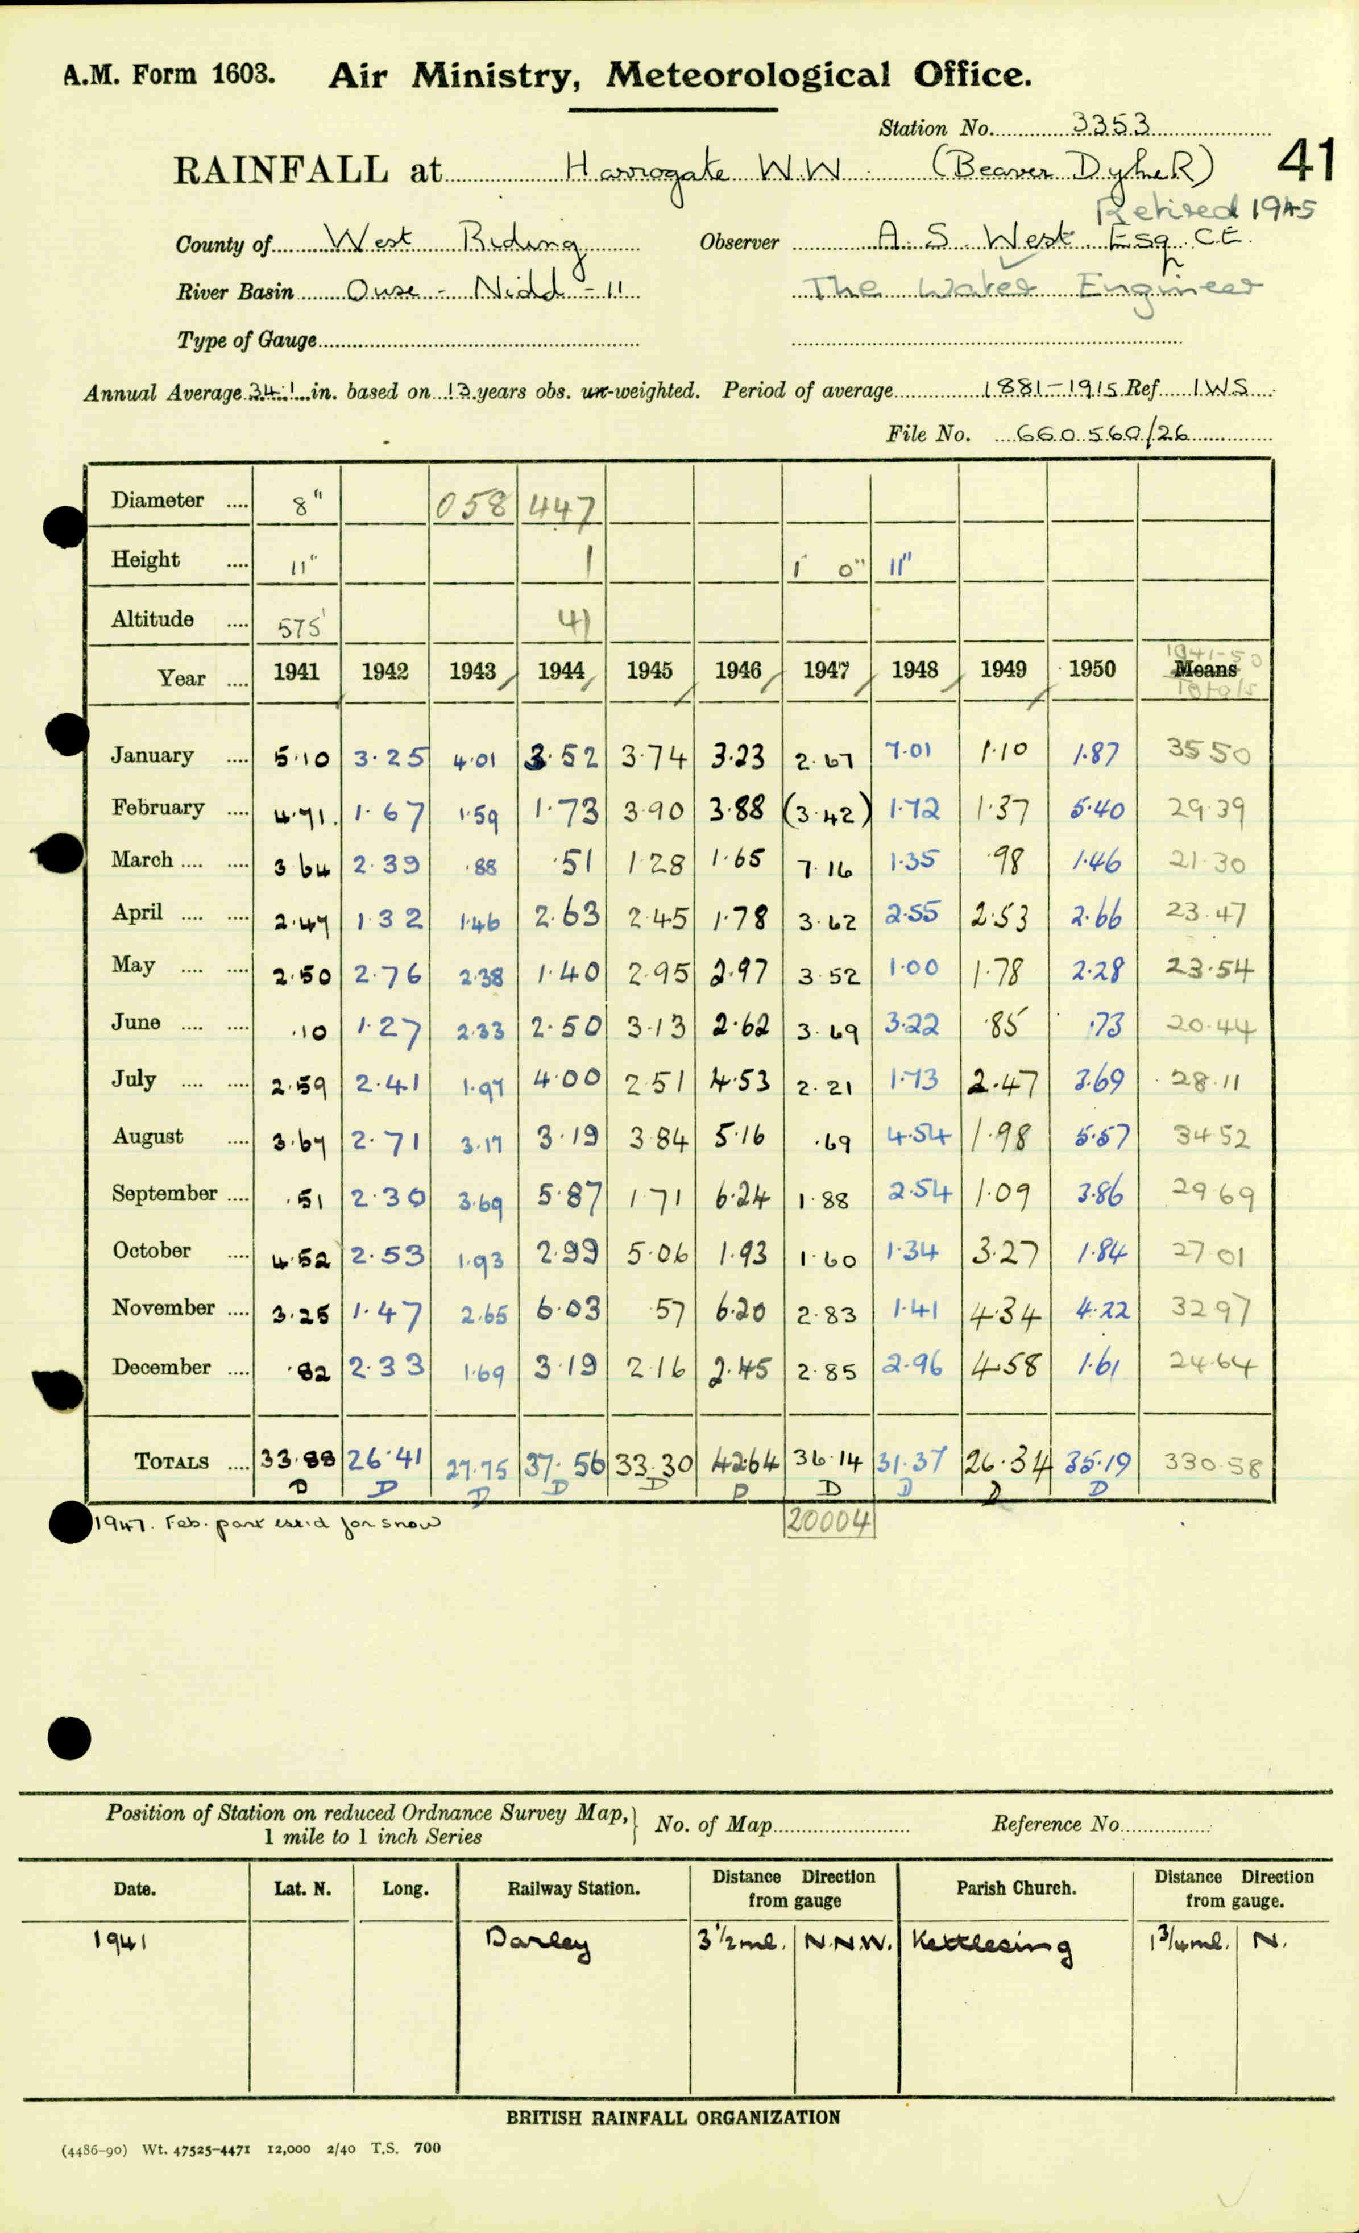 A.M. Form 1603. Air Ministry, Meteorological Office.
Station No. 3353
RAINFALL at Harrogate W.W. (Beaver Dyke R) 41
Retired 1945
County of West Riding Observer A. S. West Esq. C.E.
River Basin Ouse - Nidd - 11 The Water Engineer
Type of Gauge
Annual Average 34.1 in. based on 13 years obs. un-weighted. Period of average 1881-1915 Ref IWS
File No. 660560/26
Diameter .... 8" 058 447
Height .... 11" 1 1' 0" 11"
Altitude .... 575' 41
1941-50
Year .... 1941 1942 1943 1944 1945 1946 1947 1948 1949 1950 Means
Totals
January .... 5.10 3.25 4.01 3.52 3.74 3.23 2.67 7.01 1.10 1.87 35.50
February .... 4.71 1.67 1.59 1.73 3.90 3.88 (3.42) 1.72 1.37 5.40 29.39
March .... .... 3.64 2.39 .88 .51 1.28 1.65 7.16 1.35 .98 1.46 21.30
April .... .... 2.47 1.32 1.46 2.63 2.45 1.78 3.62 2.55 2.53 2.66 23.47
May .... .... 2.50 2.76 2.38 1.40 2.95 2.97 3.52 1.00 1.78 2.28 23.54
June .... .... .10 1.27 2.33 2.50 3.13 2.62 3.69 3.22 .85 .73 20.44
July .... .... 2.59 2.41 1.97 4.00 2.51 4.53 2.21 1.73 2.47 3.69 28.11
August .... 3.67 2.71 3.17 3.19 3.84 5.16 .69 4.54 1.98 5.57 34.52
September .... .51 2.30 3.69 5.87 1.71 6.24 1.88 2.54 1.09 3.86 29.69
October .... 4.52 2.53 1.93 2.99 5.06 1.93 1.60 1.34 3.27 1.84 27.01
November .... 3.25 1.47 2.65 6.03 .57 6.20 2.83 1.41 4.34 4.22 32.97
December .... .82 2.33 1.69 3.19 2.16 2.45 2.85 2.96 4.58 1.61 24.64
TOTALS .... 33.88 26.41 27.75 37.56 33.30 42.64 36.14 31.37 26.34 35.19 330.58
D D D D D D D D D D
1947. Feb. part est'd for snow 20004
Position of Station on reduced Ordnance Survey Map, 1 mile to 1 inch Series } No. of Map Reference No.
Date. Lat. N. Long. Railway Station. Distance Direction from gauge Parish Church. Distance Direction from gauge.
1941 Darley 3½ ml. N.N.W. Kettlesing 1¾ ml. N.
BRITISH RAINFALL ORGANIZATION
(4486-90) Wt. 47525-4471 12,000 2/40 T.S. 700